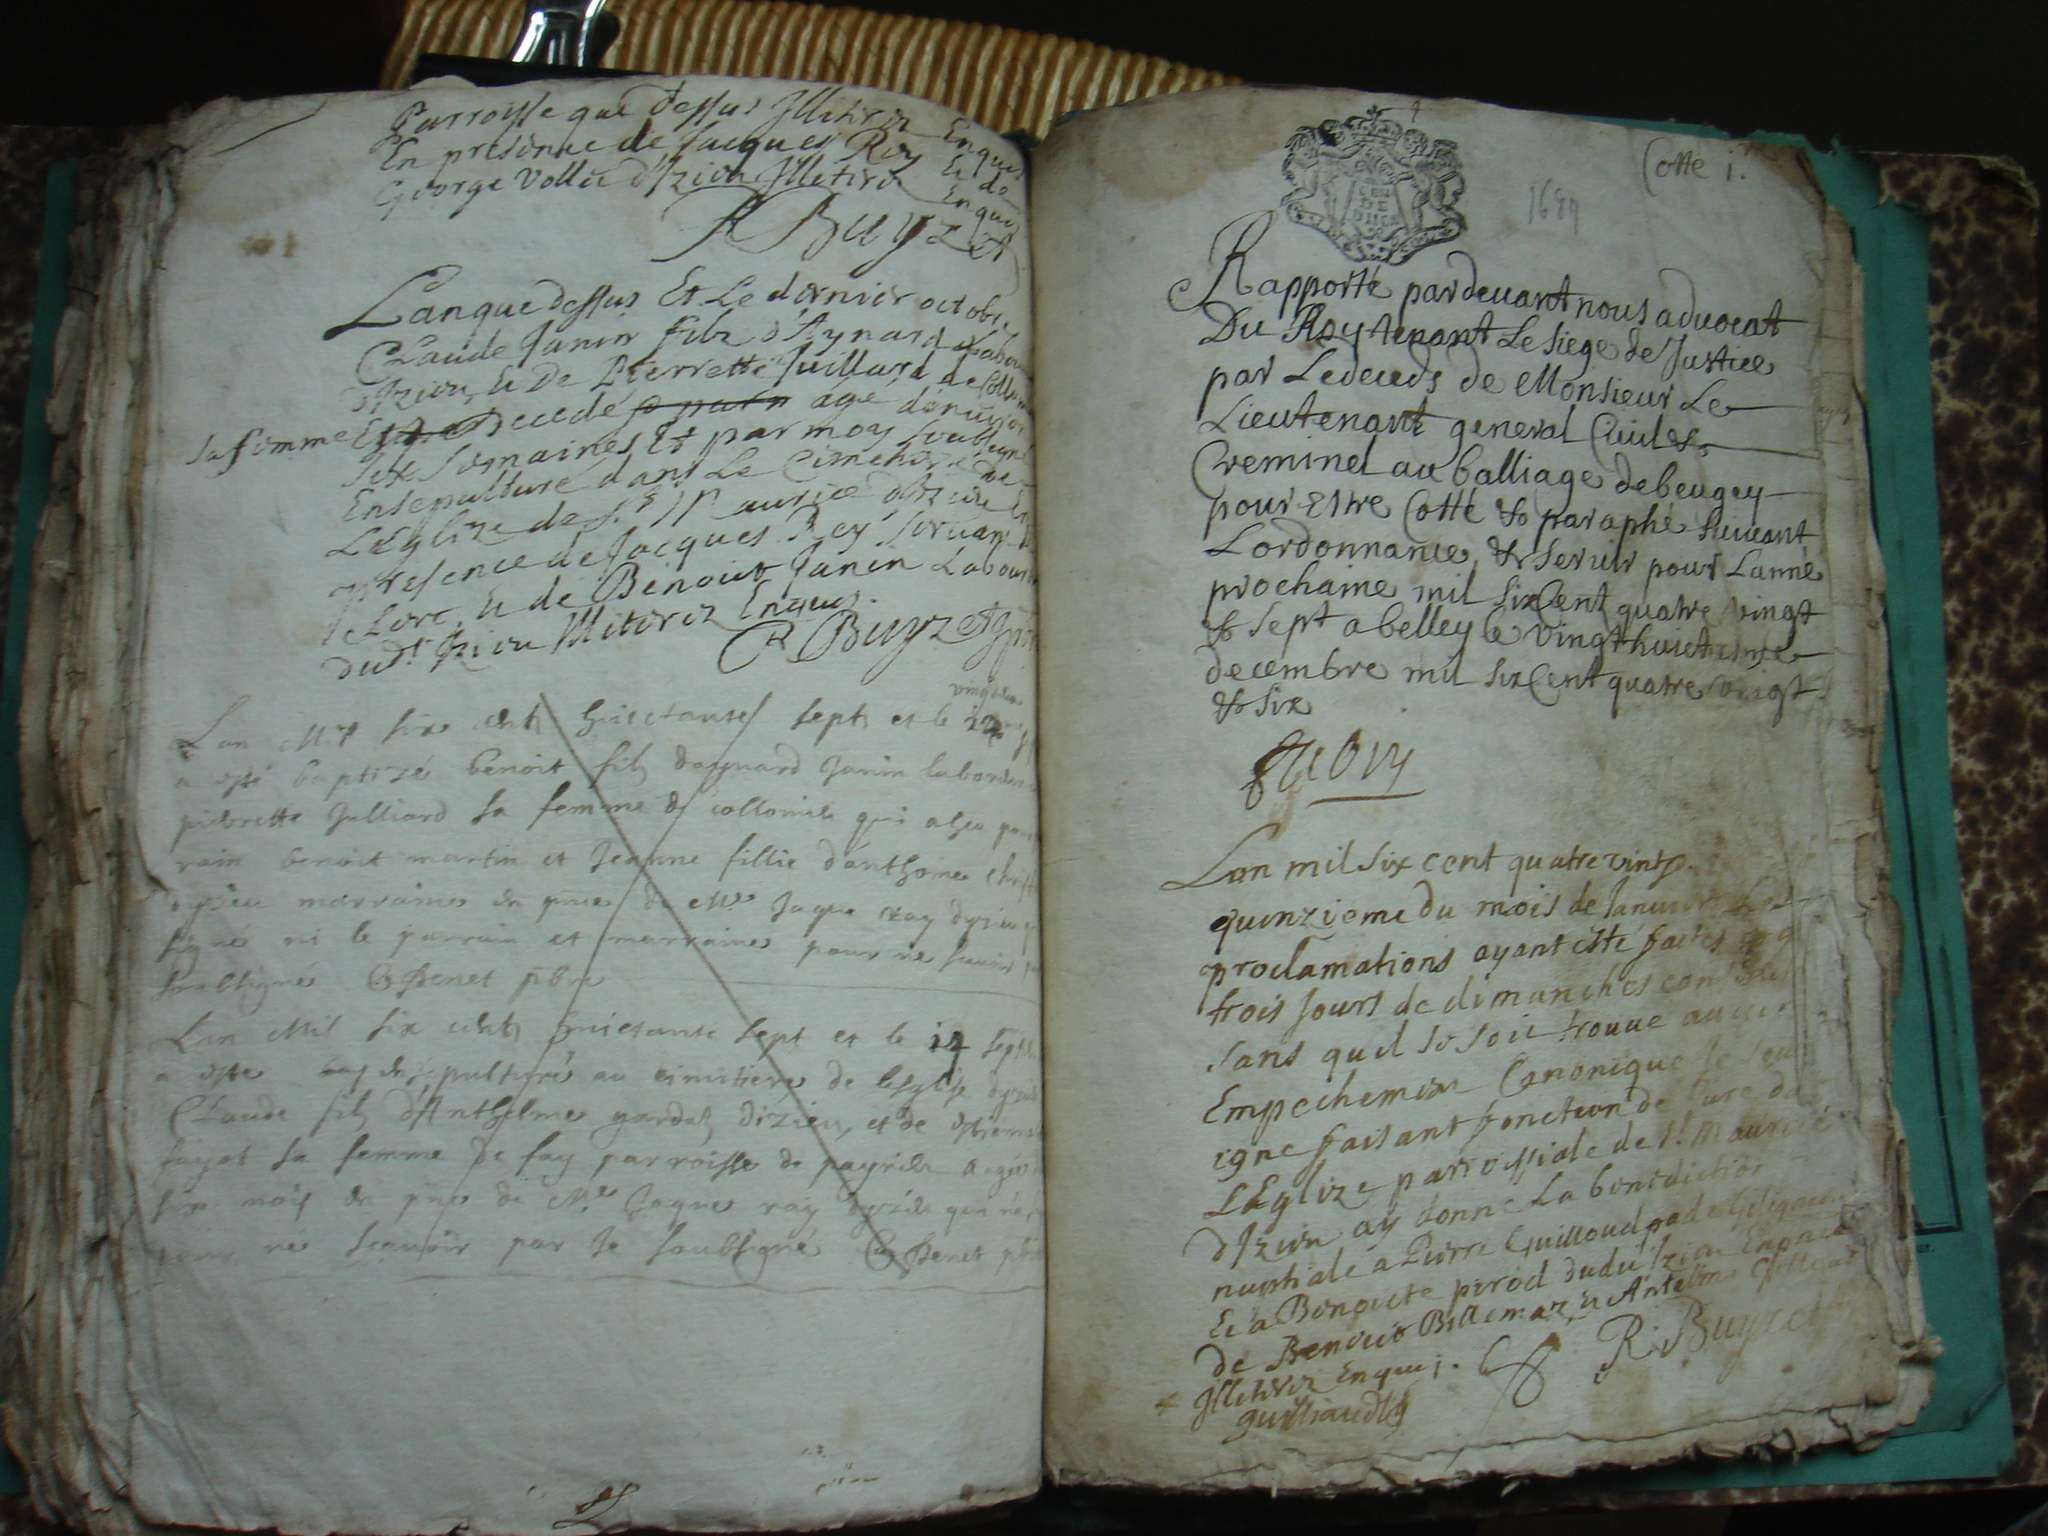 Parroisse que dessus Illitiréz Enquis
En presence de Jacques Rey Et de
George Vollet d'Izieu Illitiréz Enquis
R Buyzet
Lanque dessus Et Le dernier octobre
Claude Janin filz d'Aynard Labour
d'Izieu, Et De Pierrette Juillard de Coll
sa femme Est Decedé age d'environ
six semaines Et par moy soubsigné
Ensepulturé dans Le Cimetiere de
LEglize de St Maurice d'Izieu En
presence de Jacques Rey servant
Clerc, Et de Benoit Janin Labour
dudt Izieu Illiteréz Enquis.
R Buyzet
vingt
Lan Mil six cent huictante sept et le
a esté baptizé benoit fils daynard Janin laboureur
pierrette Julliard sa femme de collomieu qui a heu par
rain benoit martin et Jeanne fillie d'anthoine
dyzieu marraine en pnce de Me Jaque ray dyzieu
signé ni le parrain et marraine pour ne scavoir
soubsigné Genet pbre
Lan Mil six cent huictante sept et le 12 sept
a este ensepulturé au cimitiere de leglise dyzieu
Claude fils d'Anthelme gardat dizieu, et de
fayot sa femme de fay parroisse de peyrieu agé
six mois en pnce de Me Jaques ray dyzieu qui n'a
pour ne scavoir par Je soubsigné Genet pbre
Cotte i.
1689
Rapporté pardevant nous advocat
Du Roy tenant Le siege de Justice
par Le deceds de Monsieur Le
Lieutenant general Civil &
Creminel au balliage de beugey
pour Estre Cotté & paraphé suivant
Lordonnance, & servir pour Lanné
prochaine mil six Cent quatre vingt
& sept a belley le vingthuictiesme
decembre mil six Cent quatre vingt
& six
Lan mil six cent quatre vint
quinzieme du mois de Janvier Les
proclamations ayant esté faites
trois Jours de dimanches
sans quil se soit trouve aucun
Empechement Canonique Je soub
igne faisant fonction de Cure de
LEglize parrossiale de St Maurice
d'Izieu ay donne La benediction
nuptiale a Pierre Guilloud
Et a Benoicte perod dudt Izieu En pnce
de Benoit Billiemaz, Et Antelme
Illitiréz Enquis. R. Buyzet
guilliaud